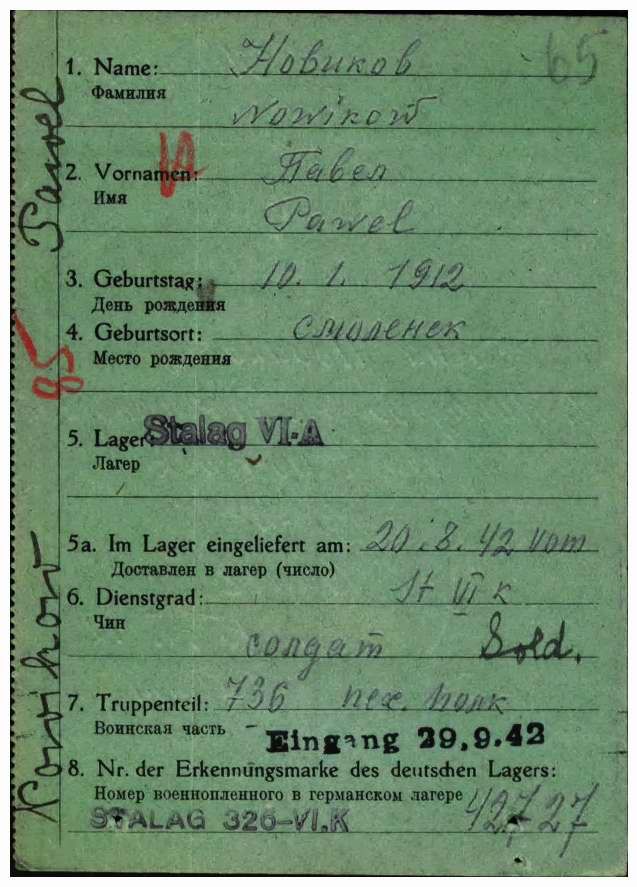 65
1. Name: Новиков
Фамилия
Nowikow
2. Vornamen: Павел
Имя
Pawel
3. Geburtstag: 10. 1. 1912
День рождения
4. Geburtsort: Смоленск
Место рождения
5. Lager Stalag VI-A
Лагер
5a. Im Lager eingeliefert am: 20.8.42 vom
Доставлен в лагер (число)
6. Dienstgrad: St VI K
Чин
солдат Sold.
7. Truppenteil: 736 пех. полк
Воинская часть Eingang 29.9.42
8. Nr. der Erkennungsmarke des deutschen Lagers:
Номер военнопленного в германском лагере 42727
STALAG 326-VI.K
Nowikow Pawel
95